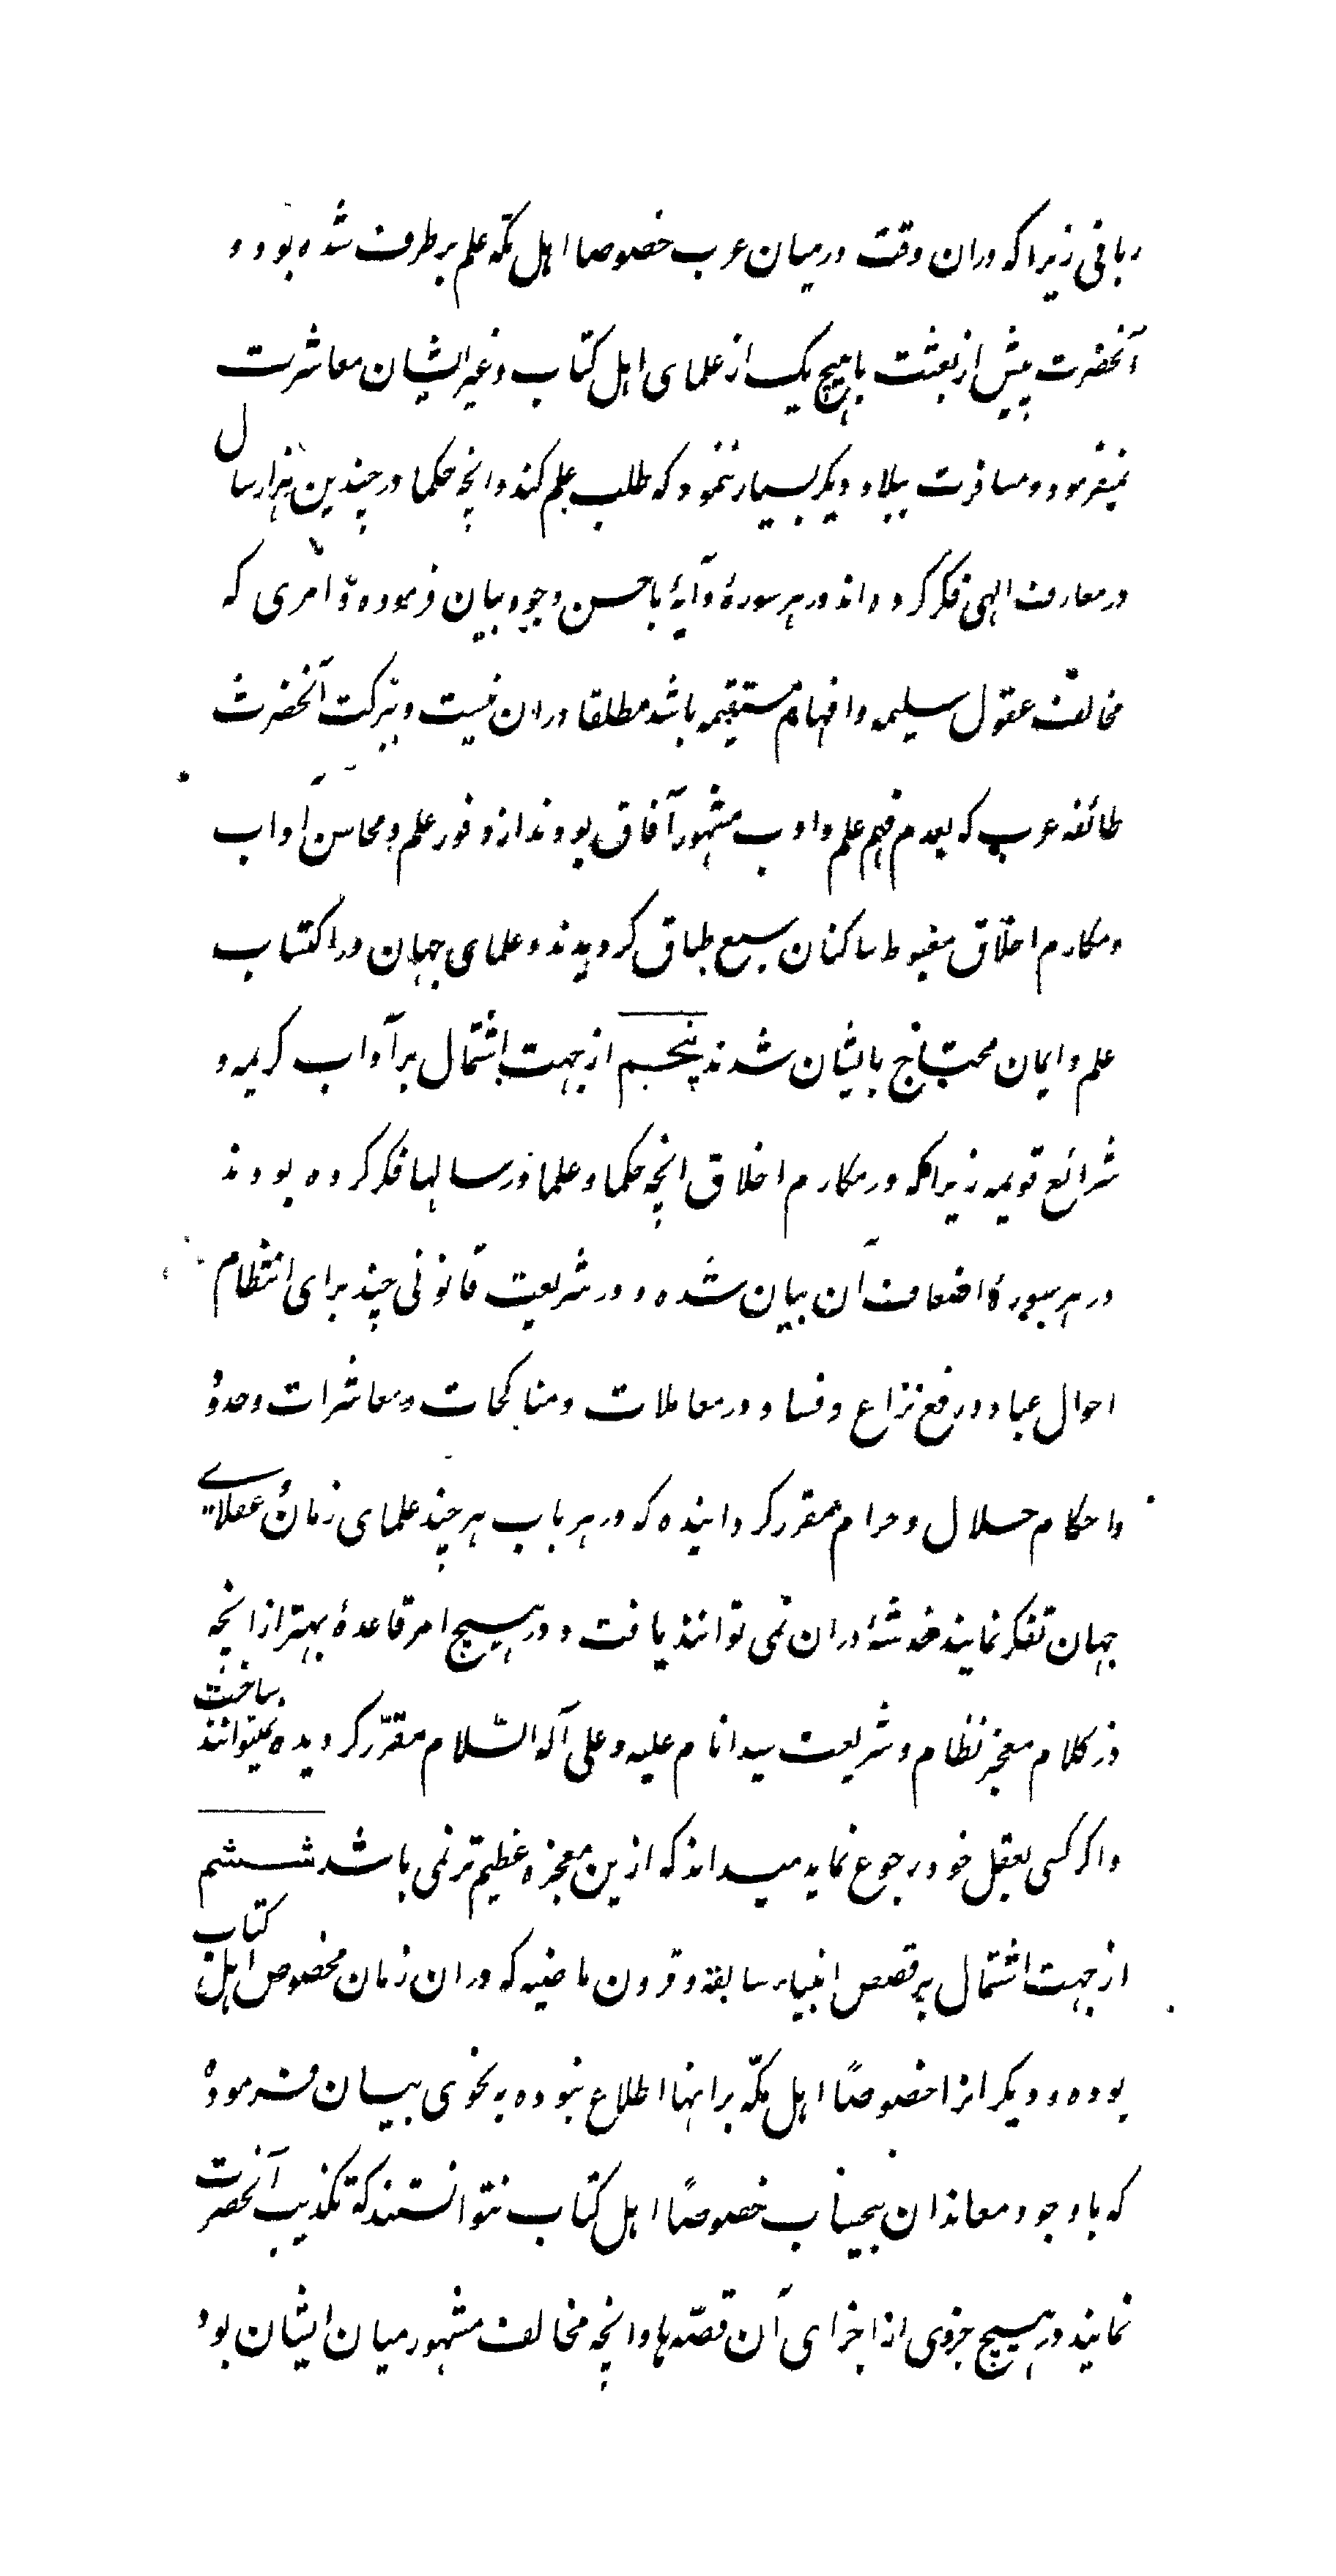 ربانی زیرا که دران وقت درمیان عرب خصوصا اهل مکه علم برطرف شده بود و
آنحضرت پیش از بعثت با هیچ یک از علمای اهل کتاب و غیر ایشان معاشرت
نمیفرمود و مسافرت ببلاد دیگر بسیار ننمود که طلب علم کند و انچه حکما در چندین هزار سال
در معارف الهی فکر کرده اند در هر سورهٔ و آیهٔ باحسن وجوه بیان فرموده و امری که
مخالف عقول سلیمه و افهام مستقیمه باشد مطلقا دران نیست و ببرکت آنحضرت
طائفه عرب که بعدم فهم علم و ادب مشهور آفاق بودند از وفور علم و محاسن آداب
و مکارم اخلاق مغبوط ساکنان سبع طباق گردیدند و علمای جهان در اکتساب
علم و ایمان محتاج بایشان شدند پنجم از جهت اشتمال بر آداب کریمه و
شرائع قویمه زیرا که در مکارم اخلاق انچه حکما و علما در سالها فکر کرده بودند
در هر سورهٔ اضعاف آن بیان شده و در شریعت قانونی چند برای انتظام
احوال عباد و رفع نزاع و فساد در معاملات و مناکحات و معاشرات و حدود
و احکام حلال و حرام مقرر گردانیده که در هر باب هر چند علمای زمان و عقلای
جهان تفکر نمایند خدشهٔ دران نمی توانند یافت و در هیچ امر قاعدهٔ بهتر از انچه
در کلام معجز نظام و شریعت سید انام علیه و علی آله السّلام مقرّر گردیده نمیتوانند ساخت
و اگر کسی بعقل خود رجوع نماید میداند که ازین معجزه عظیم تر نمی باشد ششم
از جهت اشتمال بر قصص انبیاء سابقه و قرون ماضیه که دران زمان مخصوص اهل کتاب
بوده و دیگرانرا خصوصًا اهل مکّه برانها اطلاع نبوده بنحوی بیان فرموده
که با وجود معاندان بیحساب خصوصًا اهل کتاب نتوانستند که تکذیب آنحضرت
نمایند در هیچ جزوی از اجزای آن قصّه ها و انچه مخالف مشهور میان ایشان بود